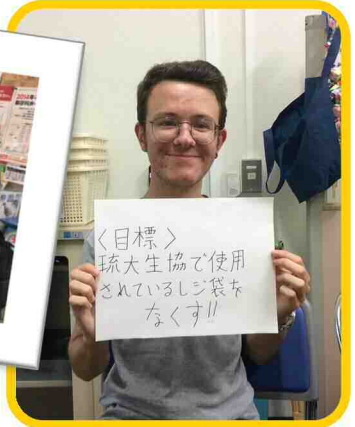 〈目標〉
琉大生協で使用
されているレジ袋を
なくす!!